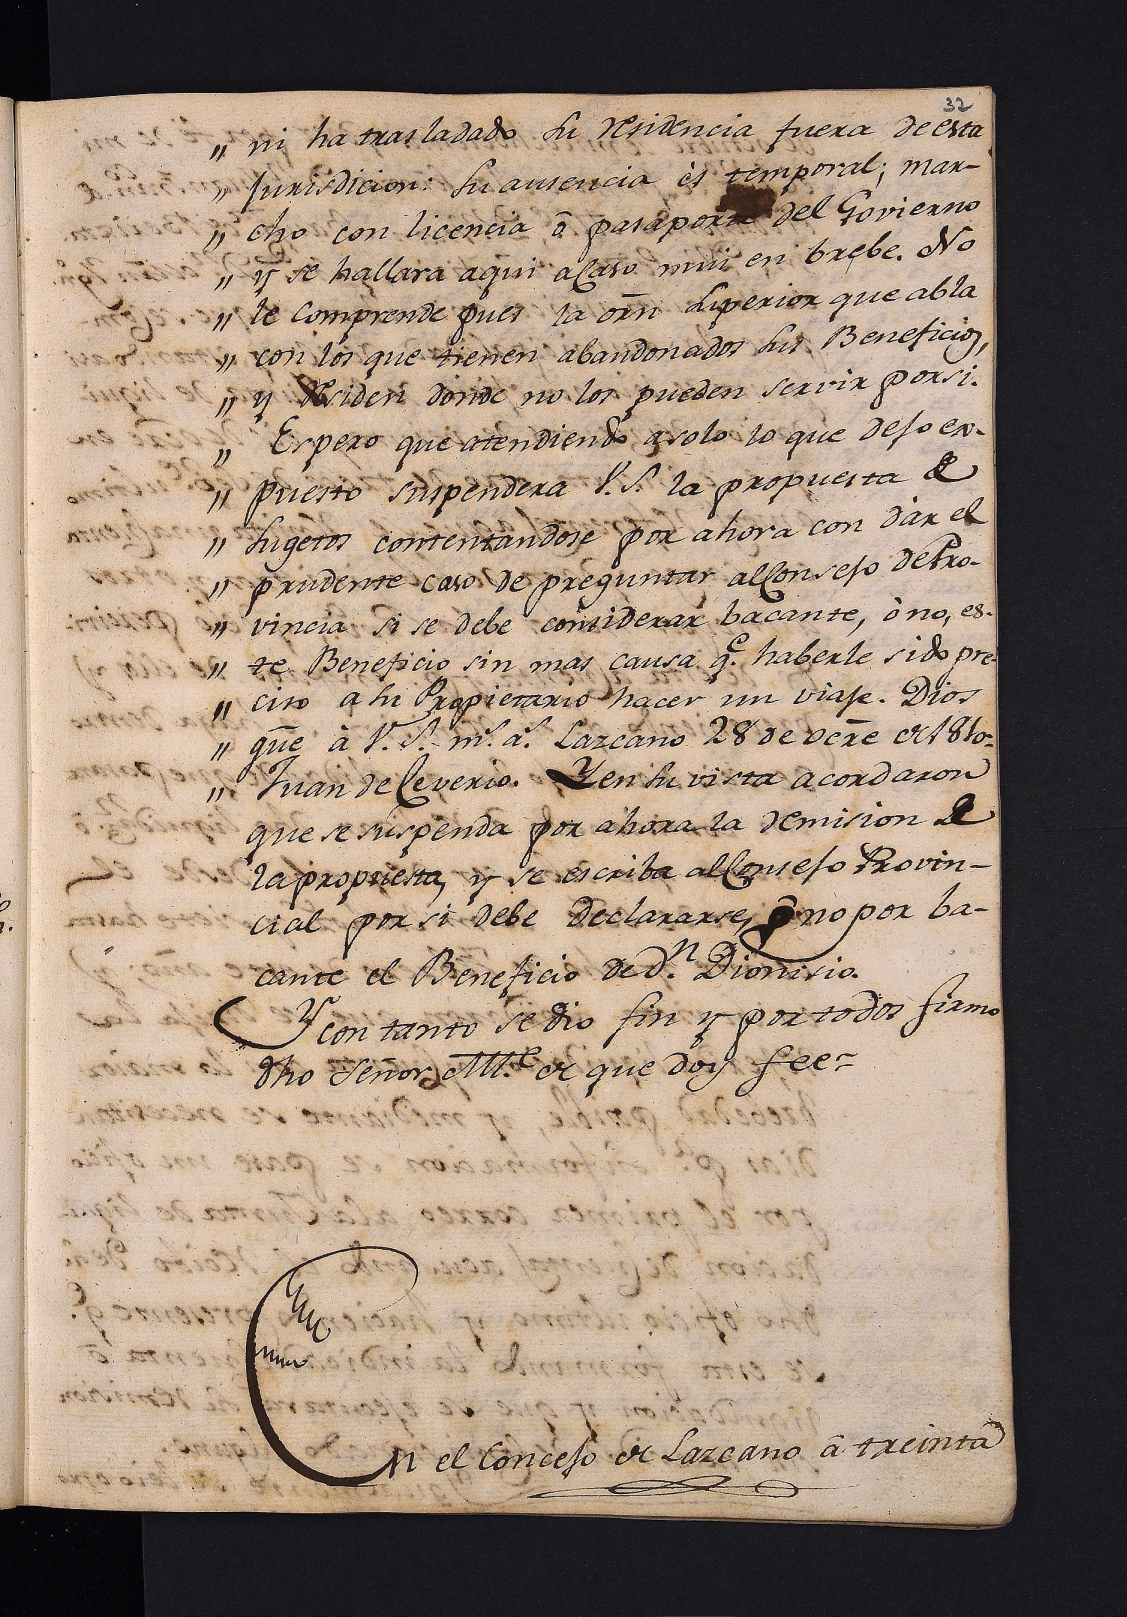 32
„ ni ha trasladado su residencia fuera de esta
„ Jurisdicion: su ausencia és temporal; mar-
„ cho con licencia ô pasaporte del Govierno
„ y se hallara aqui acaso mui en brebe. No
„ le comprende pues la orn̄ superior que abla
„ con los que tienen abandonados sus Beneficios,
„ y residen donde no los pueden servir por si.
„ Espero que atendiendo a solo lo que dejo ex-
„ puesto suspendera V.S. la propuesta de
„ sugetos contentandose por ahora con dàr el
„ prudente caso de preguntar al Consejo de Pro-
„ vincia si se debe considerar bacante, ò no, es-
„ te Beneficio sin mas causa q.e haberle sido pre-
„ ciso a su Propietario hacer un viaje. Dios
„ gūe à V.S. m.s a.s Lazcano 28 de ocr̄e de 1810-
„ Juan de Ceverio. Y en su vista acordaron
que se suspenda por ahora la demision de
la propuesta, y se escriba al Consejo Provin-
cial por si debe declararse, ô no por ba-
cante el Beneficio de d.n Dionisio.
Y con tanto se dio fin y por todos firmo
dho Señor Al.e de que doy fee-
En el Concejo de Lazcano â treinta